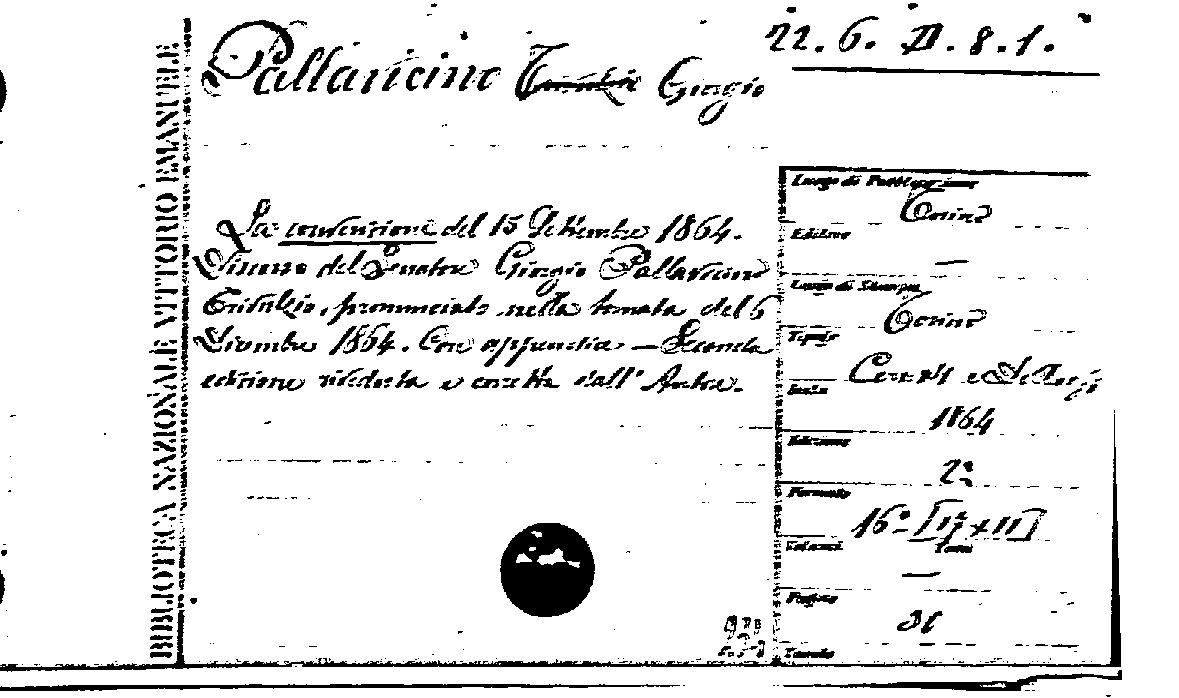 22. 6. D. 8. 1.
Pallavicino Trivulzio Giorgio
BIBLIOTECA NAZIONALE VITTORIO EMANUELE
La convenzione del 15 Settembre 1864.
Discorso del Senatore Giorgio Pallavicino
Trivulzio, pronunciato nella tornata del 6
Dicembre 1864. Con appendice — Seconda
edizione riveduta e corretta dall' Autore.
Luogo di Pubblicazione
Torino
Editore
—
Luogo di Stampa
Torino
Tipografo
Data
1864
Edizione
2ª
Formato
16º [17 x 11]
Volumi Tomi
—
Pagine
Tavole